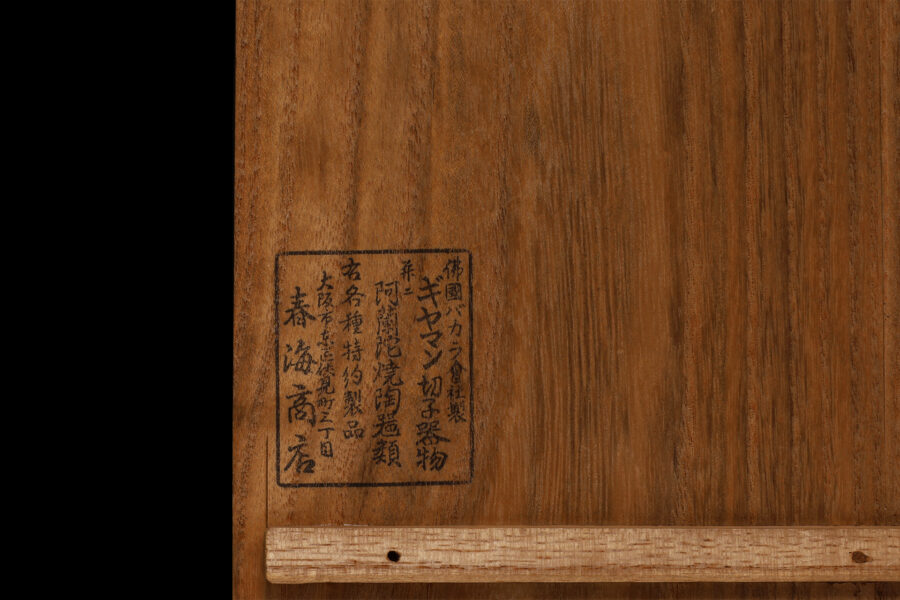 佛國バカラ會社製
ギヤマン切子器物
并ニ
阿蘭陀焼陶器類
右各種特約製品
大阪市東區伏見町三丁目
春海商店